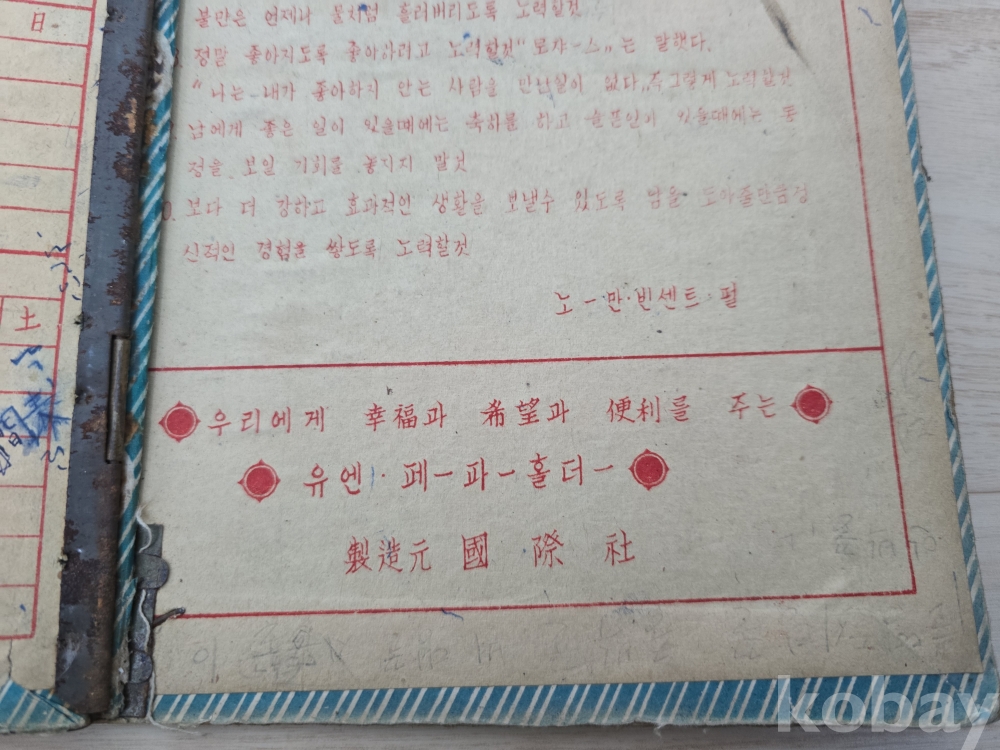 日
土
불만은 언제나 물처럼 흘러버리도록 노력할것
정말 좋아지도록 좋아하려고 노력할것 "로쟈-스„는 말했다.
"나는 내가 좋아하지 안는 사람을 만난일이 없다„ 즉그렇게 노력할것
남에게 좋은 일이 있을때에는 축하를 하고 슬픈일이 있을때에는 동
정을 보일 기회를 놓지지 말것
0. 보다 더 강하고 효과적인 생활을 보낼수 있도록 남을 도아줄만큼정
신적인 경험을 쌓도록 노력할것
노ー만·빈센트·필
우리에게 幸福과 希望과 便利를 주는
유엔·페ー파ー홀더ー
製造元 國際社
kobay